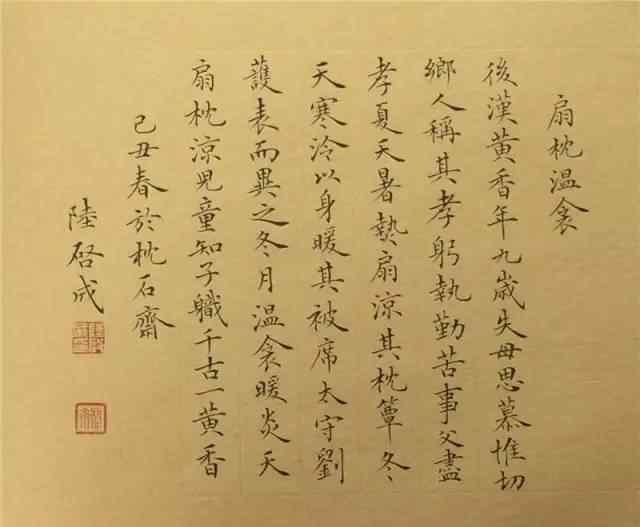 扇枕温衾
後漢黃香年九歲失母思慕惟切
鄉人稱其孝躬執勤苦事父盡
孝夏天暑熱扇涼其枕簟冬
天寒冷以身暖其被席太守劉
護表而異之冬月温衾暖炎天
扇枕涼兒童知子職千古一黃香
己丑春於枕石齋
陸啓成